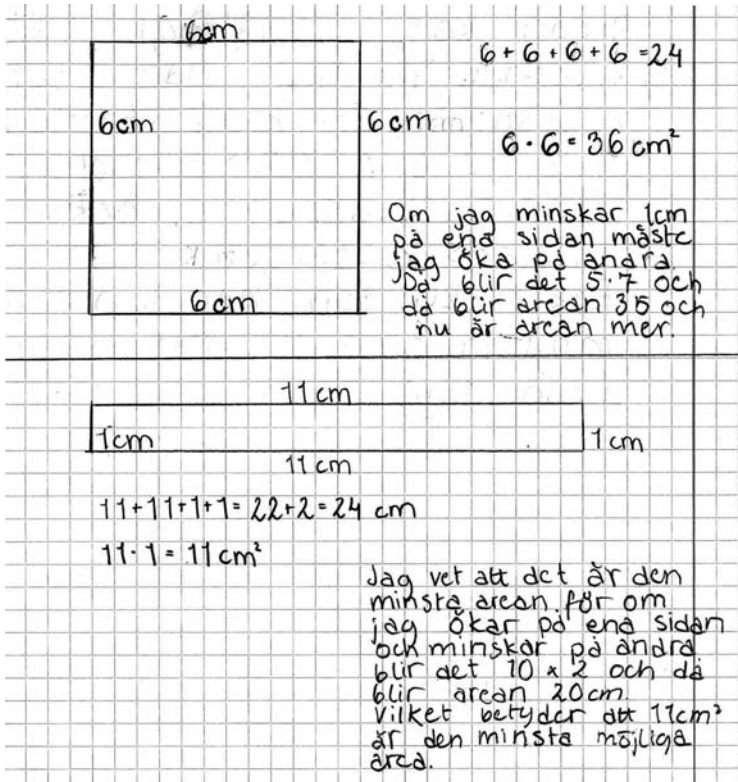 6cm
6 + 6 + 6 + 6 = 24
6cm
6cm
6 · 6 = 36 cm²
Om jag minskar 1cm
på ena sidan måste
jag öka på andra.
Då blir det 5·7 och
då blir arean 35 och
nu är arean mer.
6cm
11 cm
1cm
1 cm
11 cm
11+11+1+1= 22+2=24 cm
11· 1 = 11 cm²
Jag vet att det är den
minsta arean för om
jag ökar på ena sidan
och minskar på andra
blir det 10 x 2 och då
blir arean 20cm.
Vilket betyder att 11cm²
är den minsta möjliga
area.